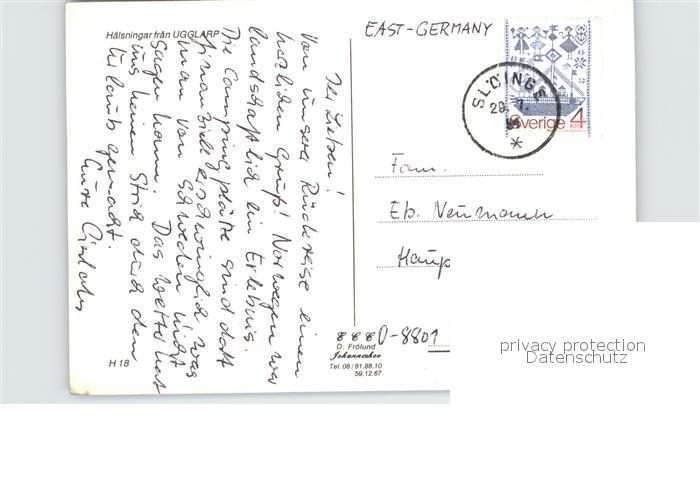 Hälsningar från UGGLARP
Ihr Lieben!
Von unserer Rückreise einen
herzlichen Gruß! Norwegen war
landschaftlich ein Erlebnis.
Die Campingplätze sind dort
finanziell erschwinglich, was
man von Schweden nicht
sagen kann. Das Wetter hat
uns keinen Strich durch den
Urlaub gemacht.
Eure
H 18
D. Frölund
Johanneshov
Tel. 08/81.88.10
59.12.67
EAST-GERMANY
SLÖINGE
29. 7.
Sverige 4
KR
Fam.
Eb. Neumann
Haup
D-8801
privacy protection
Datenschutz